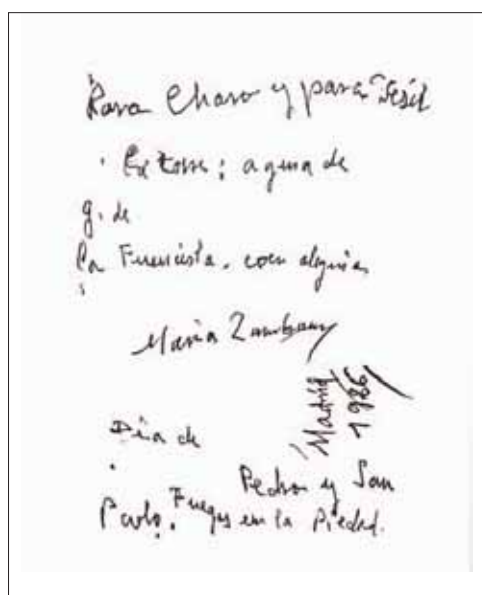 Para Charo y para Jesús
la torre; agua de
g. de
la Fuencisla. con alegría
María Zambrano
Madrid
1986
Día de
Pedro y San
Pablo. Fuego en la Piedad.